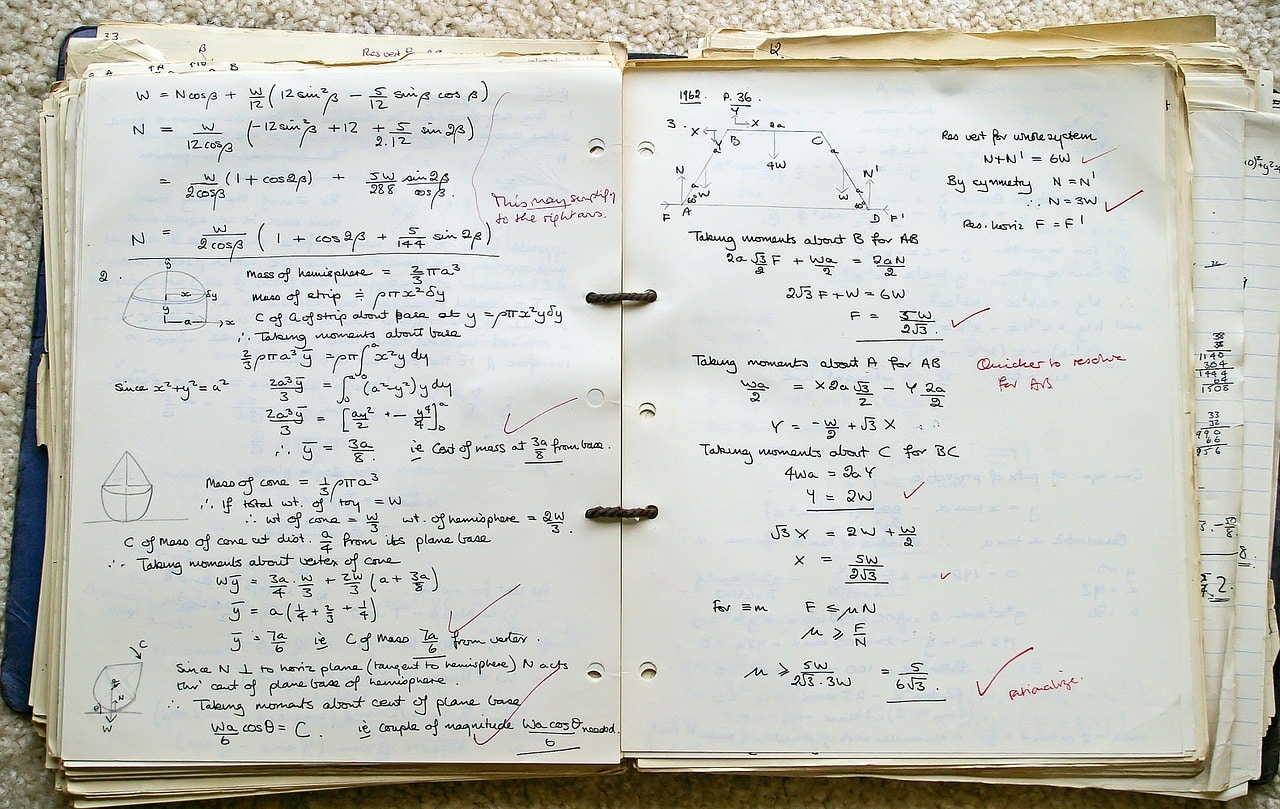 33.
β
Res vert
B
W = Ncosβ + W/12 (12sin²β − 5/12 sinβ cosβ)
N = W/12cosβ (−12sin²β + 12 + 5/2.12 sin2β)
= W/2cosβ (1 + cos2β) + 5W/288 sin2β/cosβ.
This may simplify
to the right ans.
N = W/2cosβ (1 + cos2β + 5/144 sin2β)
2.
y
x
δy
y
a
x
Mass of hemisphere = 2/3 πa³
Mass of strip ≑ ρπx²δy
C of G of strip about base at y = ρπx²yδy
∴ Taking moments about base
2/3 ρπa³ȳ = ρπ∫₀ᵃ x²y dy
Since x²+y²=a² 2a³ȳ/3 = ∫₀ᵃ (a²−y²)y dy
2a³ȳ/3 = [ay²/2 + − y⁴/4]₀ᵃ
∴ ȳ = 3a/8. ie Cent of mass at 3a/8 from base.
Mass of cone = 1/3 ρπa³
∴ If total wt. of toy = W
∴ wt of cone = W/3 wt. of hemisphere = 2W/3.
C of Mass of cone at dist. a/4 from its plane base
∴ Taking moments about vertex of cone
Wȳ = 3a/4 . W/3 + 2W/3 (a + 3a/8)
ȳ = a(1/4 + 2/3 + 1/4)
ȳ = 7a/6 ie C of Mass 7a/6 from vertex.
C
N
θ
W
Since N ⊥ to horiz plane (tangent to hemisphere) N acts
thro' cent of plane base of hemisphere.
∴ Taking moments about cent of plane base
Wa/6 cosθ = C. ie couple of magnitude Wa cosθ/6 needed.
12.
1962. P.36.
3.
Y
X
X
2a
B
C
Y
a
a
4W
N
N'
a
a
W
W
60°
60°
F
A
D
F'
Res vert for whole system
N+N' = 6W
By symmetry N = N'
∴ N = 3W
Res. horiz F = F'
Taking moments about B for AB
2a √3/2 F + Wa/2 = 2aN/2
2√3 F + W = 6W
F = 5W/2√3.
Taking moments about A for AB
Quicker to resolve
for AB
Wa/2 = X2a √3/2 − Y 2a/2
Y = −W/2 + √3 X
Taking moments about C for BC
4Wa = 2aY
Y = 2W
√3 X = 2W + W/2
X = 5W/2√3
For ≡m F ≤ μN
μ ≥ F/N
μ ≥ 5W/2√3.3W = 5/6√3.
rationalize.
38
38
1140
304
1444
64
1508
33
32
990
66
956
8.
2.